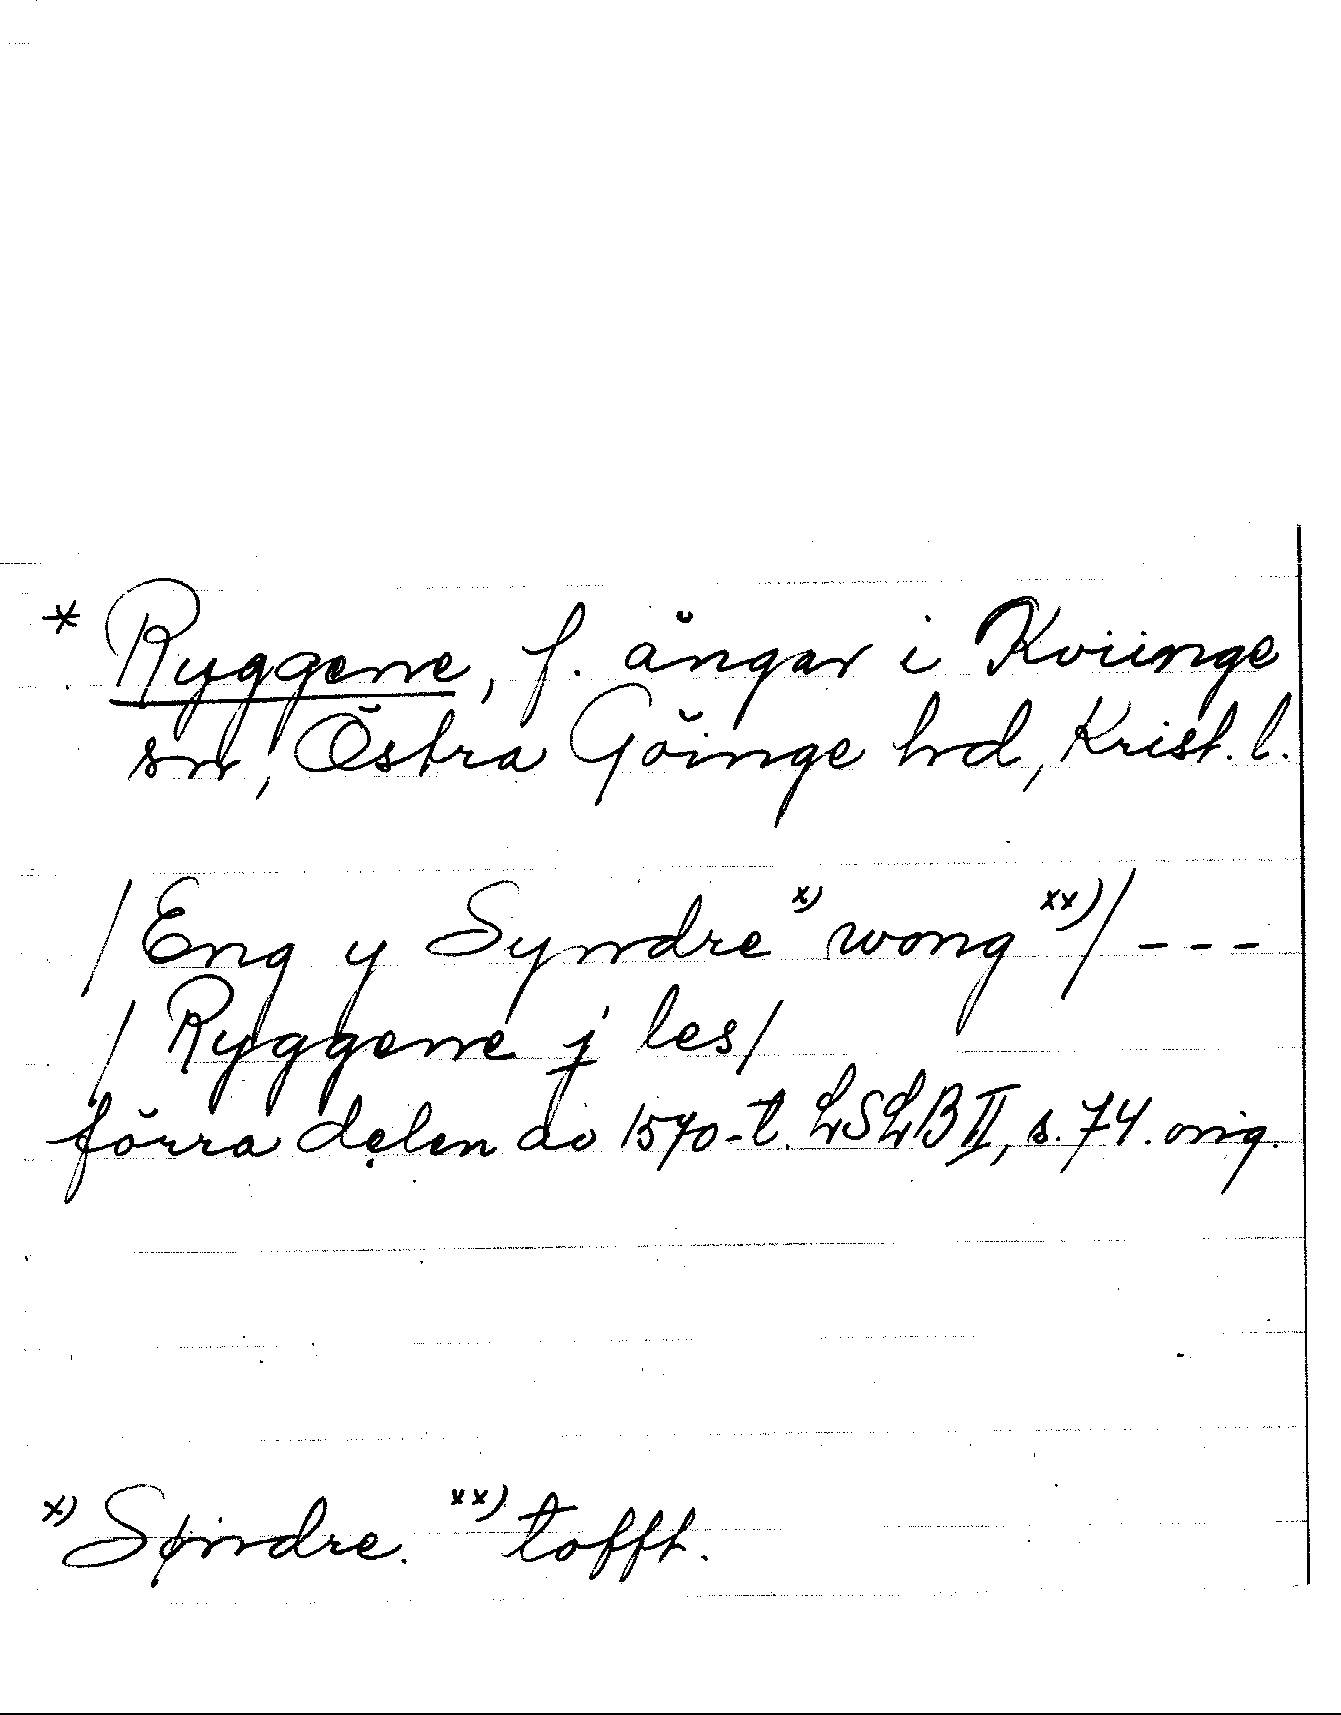 * Ryggene, f. ängar i Kviinge
sn, Östra Göinge hd, Krist. l.
/ Eng y Syndre x) wong xx) / - - -
/ Ryggene j les /
förra delen av 1570-t. LSLB II, s. 74. orig.
x) Søndre. xx) tofft.